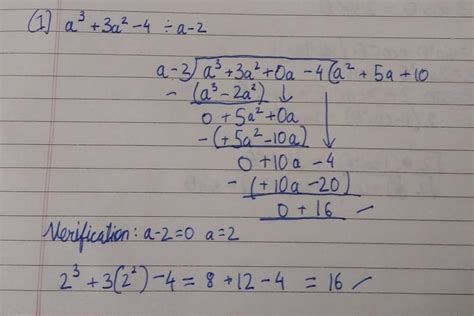 (1) a³ + 3a² - 4 ÷ a - 2
a-2) a³ + 3a² + 0a - 4 (a² + 5a + 10
- (a³ - 2a²) ↓
0 + 5a² + 0a
- (+5a² - 10a) ↓
0 + 10a - 4
- (+10a - 20)
0 + 16
Verification: a-2=0 a=2
2³ + 3(2²) - 4 = 8 + 12 - 4 = 16